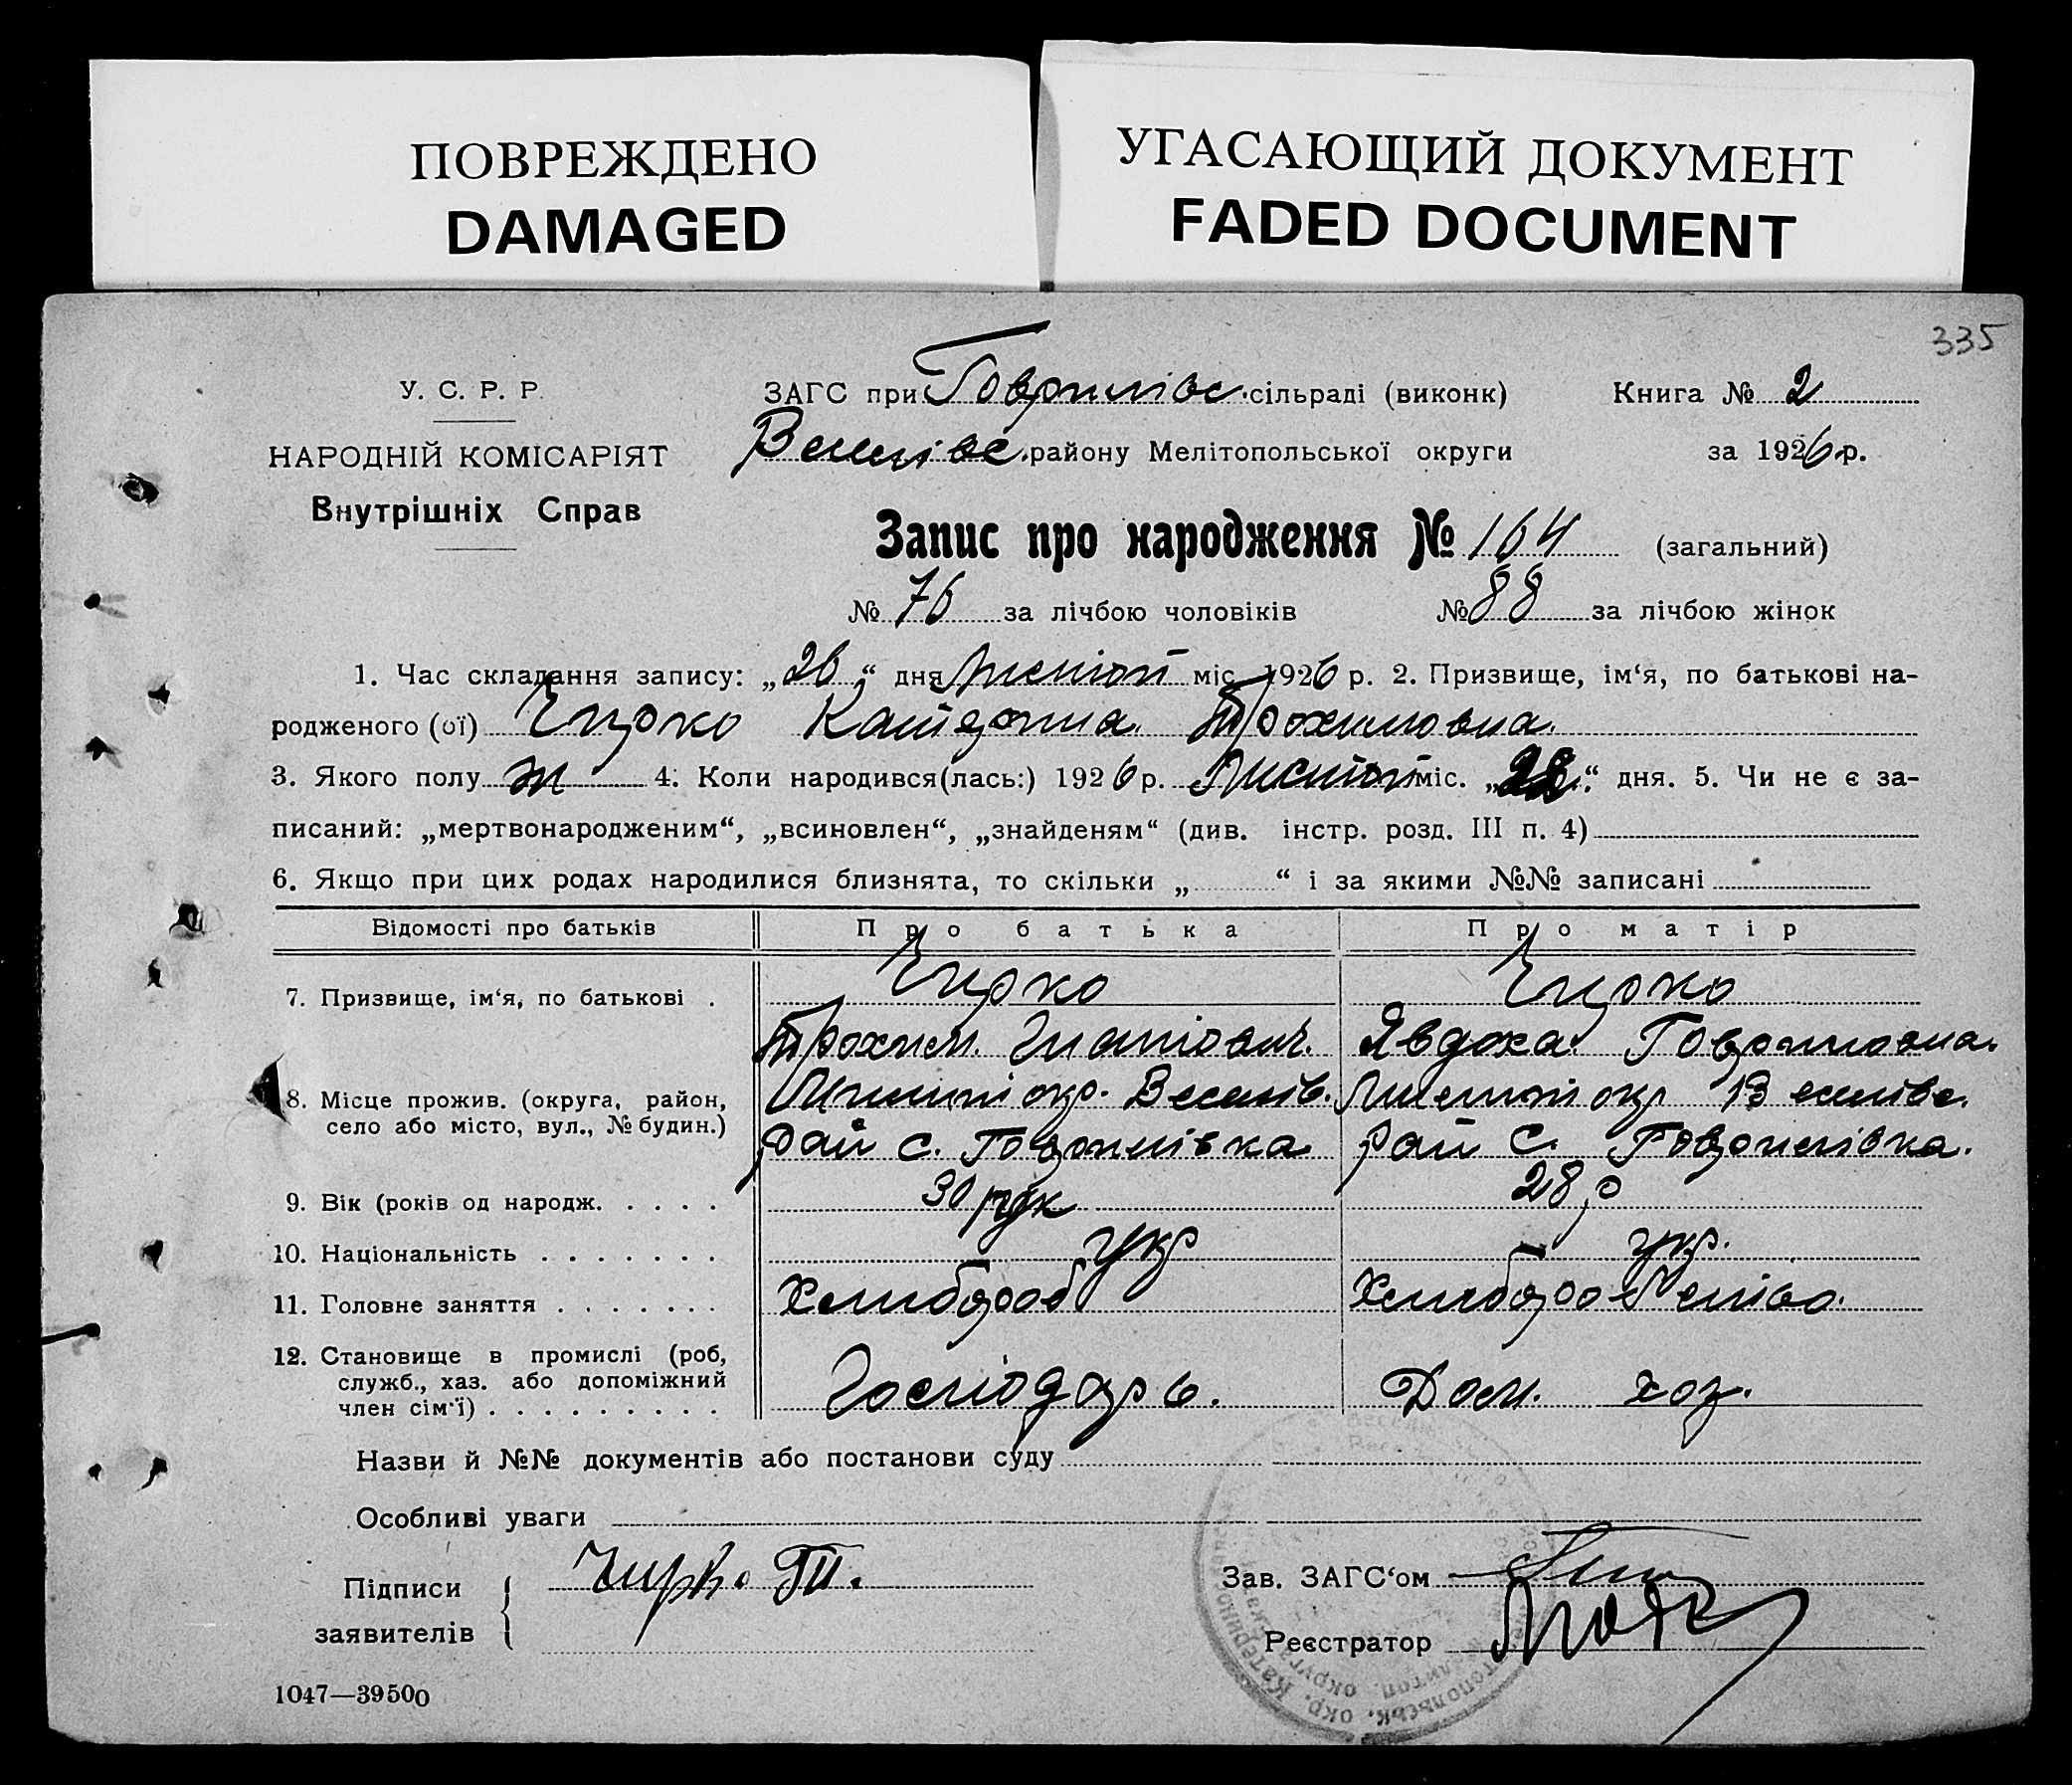 ПОВРЕЖДЕНО
DAMAGED
УГАСАЮЩИЙ ДОКУМЕНТ
FADED DOCUMENT
335
У. С. Р. Р.
НАРОДНІЙ КОМІСАРІЯТ
Внутрішніх Справ
ЗАГС при Гаврилівс. сільраді (виконк) Книга № 2
Веселівс. району Мелітопольської округи за 1926 р.
Запис про народження № 164 (загальний)
№ 76 за лічбою чоловіків № 88 за лічбою жінок
1. Час складання запису: „26“ дня Листоп міс. 1926 р. 2. Призвище, ім‘я, по батькові на-
родженого (ої) Чирко Катерина Трохимовна.
3. Якого полу ж 4. Коли народився(лась:) 1926 р. Листоп міс. „ “ дня. 5. Чи не є за-
писаний: „мертвонародженим“, „всиновлен“, „знайденям“ (див. інстр. розд. III п. 4)
6. Якщо при цих родах народилися близнята, то скільки „ “ і за якими №№ записані
Відомості про батьків Про батька Про матір
7. Призвище, ім‘я, по батькові . Чирко Чирко
Трохим. Гнатович. Явдоха Гавриловна.
8. Місце прожив. (округа, район, село або місто, вул., № будин.) Мелітоп окр. Веселів. Мелітоп окр Веселівс.
рай с. Гаврилівка рай с. Гаврилівка.
9. Вік (років од народж. . . . . 30 рок 28 р
10. Національність . . . . . . . укр укр.
11. Головне заняття . . . . . . . Хлибороб Хлибороб
12. Становище в промислі (роб, служб., хаз. або допоміжний член сім‘ї) . . . . . . . . . Господарь. Дом. хоз.
Назви й №№ документів або постанови суду
Особливі уваги
Підписи заявителів Чирк. Т.
Зав. ЗАГС‘ом
Реєстратор
1047—39500